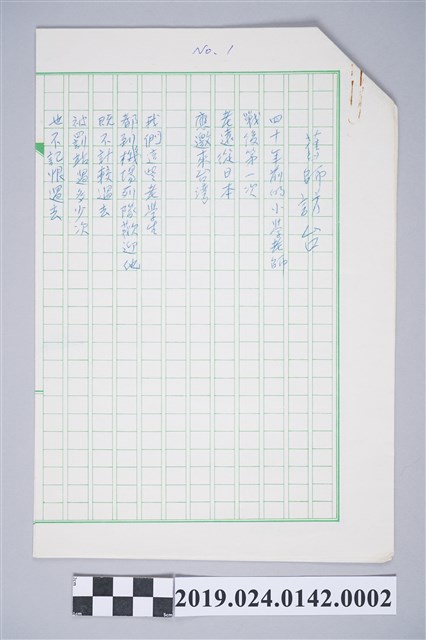 No. 1
舊師訪台
四十年前的小學老師
戰後第一次
老遠從日本
應邀來台湾
我們這些老學生
都到機場列隊歡迎他
既不計較過去
被罰站過多少次
也不記恨過去
2019.024.0142.0002